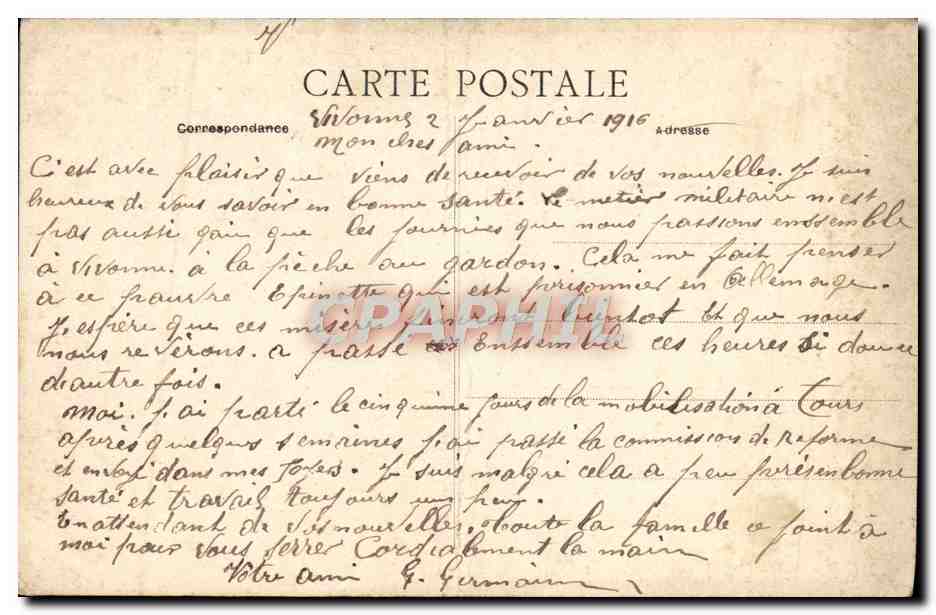 CARTE POSTALE
Correspondance
Adresse
Vivonne 2 Janvier 1916
Mon cher ami.
C'est avec plaisir que viens de recevoir de vos nouvelles. Je suis
heureux de vous savoir en bonne santé. Le metier militaire n'est
pas aussi gaie que les journies que nous passions emssemble
à Vivonne. à la pêche au gardon. Cela me fait penser
à ce pauvre Epinotte qui est prisonnier en Allemage.
J'espère que ces misères finiront bientot Et que nous
nous reverons. a passé Enssemble ces heures si douce
d'autre fois.
Moi. J'ai parti le cinquime jours de la mobilisation à Tours
après quelques semaines j'ai passé la commissions de reforme
et dans mes foyers. Je suis malgré cela a peu prés en bonne
santé et travail toujours un peu.
En attendant de vos nouvelles. toute la famille ce joint à
moi pour vous serrer Cordialement la main
Votre ami G. Germain
CPARAMA